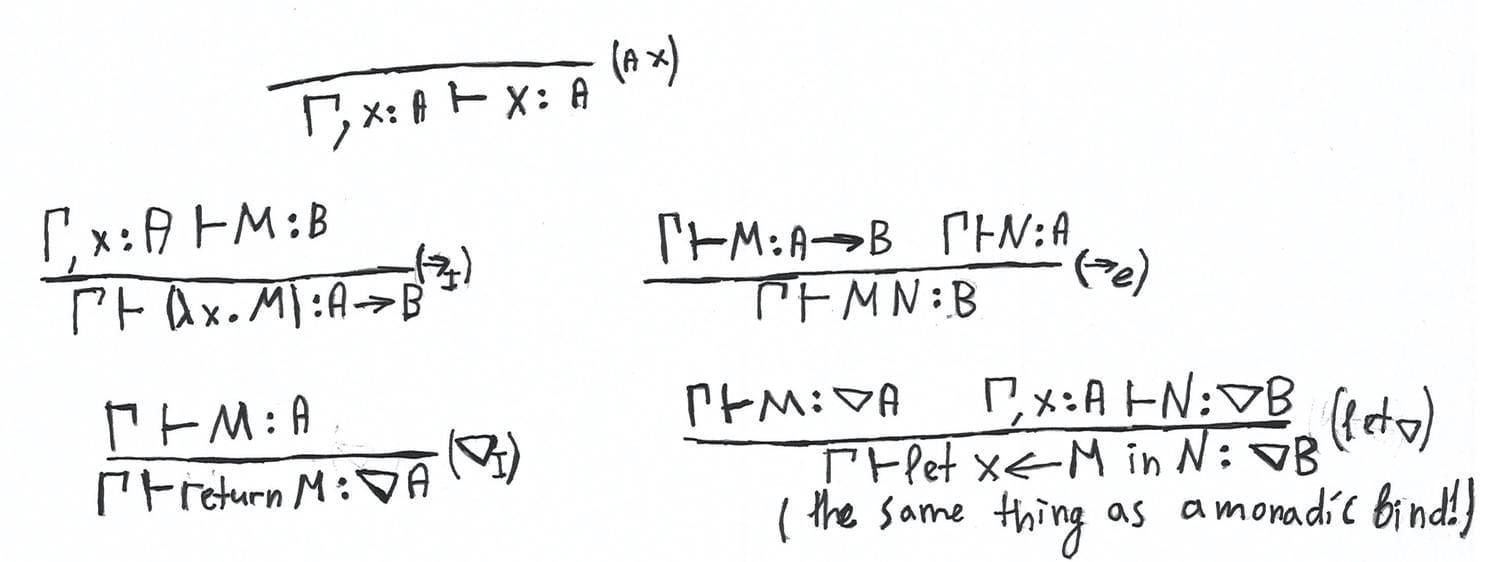 (Ax)
Γ, x: A ⊢ x: A
Γ, x: A ⊢ M: B
(→I)
Γ ⊢ (λx. M): A → B
Γ ⊢ M: A → B Γ ⊢ N: A
(→e)
Γ ⊢ M N: B
Γ ⊢ M: A
(∇I)
Γ ⊢ return M: ∇A
Γ ⊢ M: ∇A Γ, x: A ⊢ N: ∇B
(let∇)
Γ ⊢ let x ← M in N: ∇B
(the same thing as a monadic bind!)